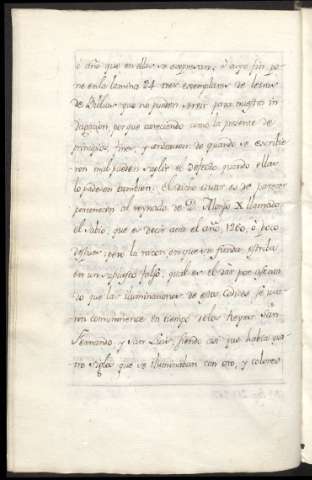 ò año que en ellos se expresan; à cuyo fin po-
ne en la lamina 24 tres exemplares de letras
de Biblias que no pueden servir para nuestra in-
dagacion, porque careciendo como la presente de
principios, fines, y de quando se escribie-
ron mal pueden suplir el defecto quando ellas
lo padecen tambien. El dicho Autor es de parecer
pertenecen al reynado de D. Alonso X llamado
el Sabio, que es decir acia el año, 1260, ò poco
despues; pero la razon en que se funda, estriba
en un supuesto falso, qual es el dàr por asenta-
do que las iluminaciones de estos Codices se usa-
ron comunmente en tiempo de los Reyes San
Fernando, y San Luis, siendo asi que habia qua-
tro siglos que se iluminaban con oro, y colores